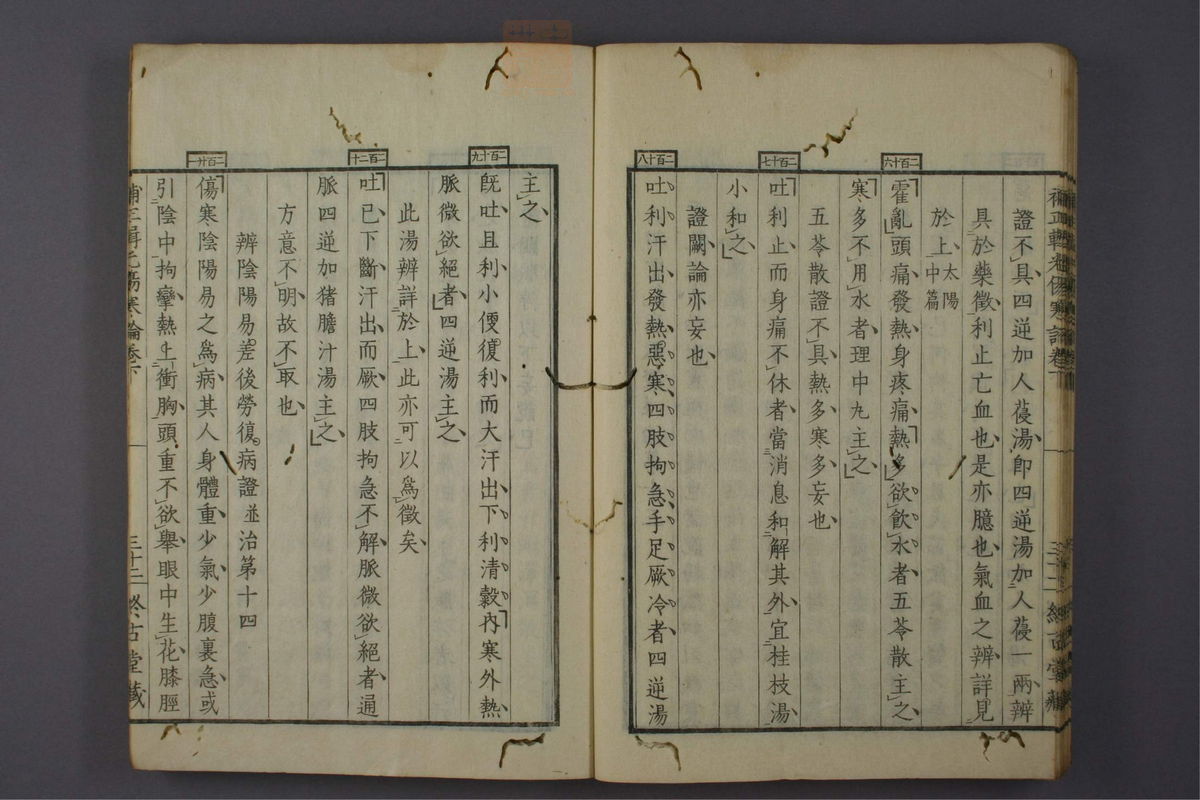 證不具四逆加人葠湯即四逆湯加人葠一兩辨
具於藥徵利止亡血也是亦臆也氣血之辨詳見
於上太陽中篇
二百十六
霍亂頭痛發熱身疼痛熱多欲飲水者五苓散主之
寒多不用水者理中丸主之
五苓散證不具熱多寒多妄也
二百十七
吐利止而身痛不休者當消息和解其外宜桂枝湯
小和之
證闕論亦妄也
二百十八
吐利汗出發熱惡寒四肢拘急手足厥冷者四逆湯
主之
二百十九
旣吐且利小便復利而大汗出下利清穀內寒外熱
脈微欲絕者四逆湯主之
此湯辨詳於上此亦可以爲徵矣
二百二十
吐已下斷汗出而厥四肢拘急不解脈微欲絕者通
脈四逆加猪膽汁湯主之
方意不明故不取也
辨陰陽易差後勞復病證並治第十四
二百廿一
傷寒陰陽易之爲病其人身體重少氣少腹裏急或
引陰中拘攣熱上衝胸頭重不欲舉眼中生花膝脛
傷寒論卷下
三十二 終古堂藏